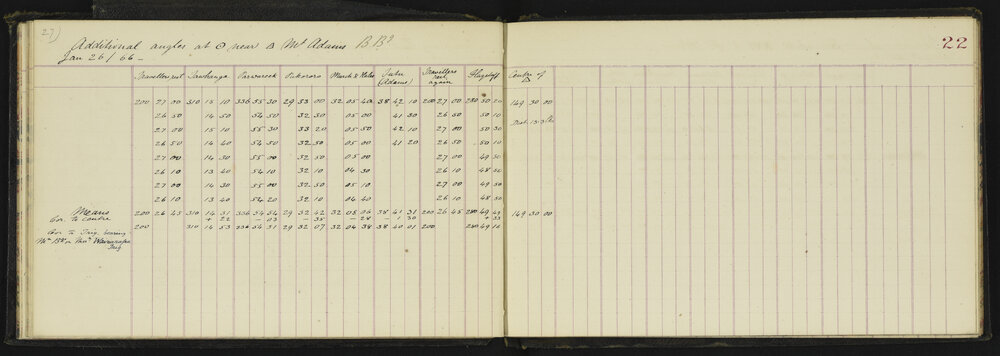 27)
22
Additional angles at ⊙ near △ Mt Adams B B2
Jan 26/66 -
Travellers rest Parworock Pukororo Tube (Adams) Travellers rest again Flagstaff Centre of △
200 27 00 310 15 10 336 55 30 29 33 00 32 05 40 38 42 10 200 27 00 280 50 20 149 30 00
26 50 14 50 54 50 32 50 05 00 41 30 26 50 50 10
27 00 15 10 55 30 33 20 05 50 42 10 27 00 50 30
26 50 14 40 54 50 32 50 05 00 41 20 26 50 50 10
27 00 14 30 55 00 32 50 05 00 27 00 49 50
26 10 13 40 54 10 32 10 04 30 26 10 48 50
27 00 14 30 55 00 32 50 05 10 27 00 49 50
26 10 13 40 54 20 32 10 04 40 26 10 48 50
Means 200 26 45 310 14 31 336 54 54 29 32 42 32 05 06 38 41 31 200 26 45 280 49 49 149 30 00
Cor. to centre + 22 - 03 - 35 - 28 - 1 30 + 33
Cor. to Trig. bearing 200 310 14 53 336 54 51 29 32 07 32 04 38 38 40 01 200 280 49 16